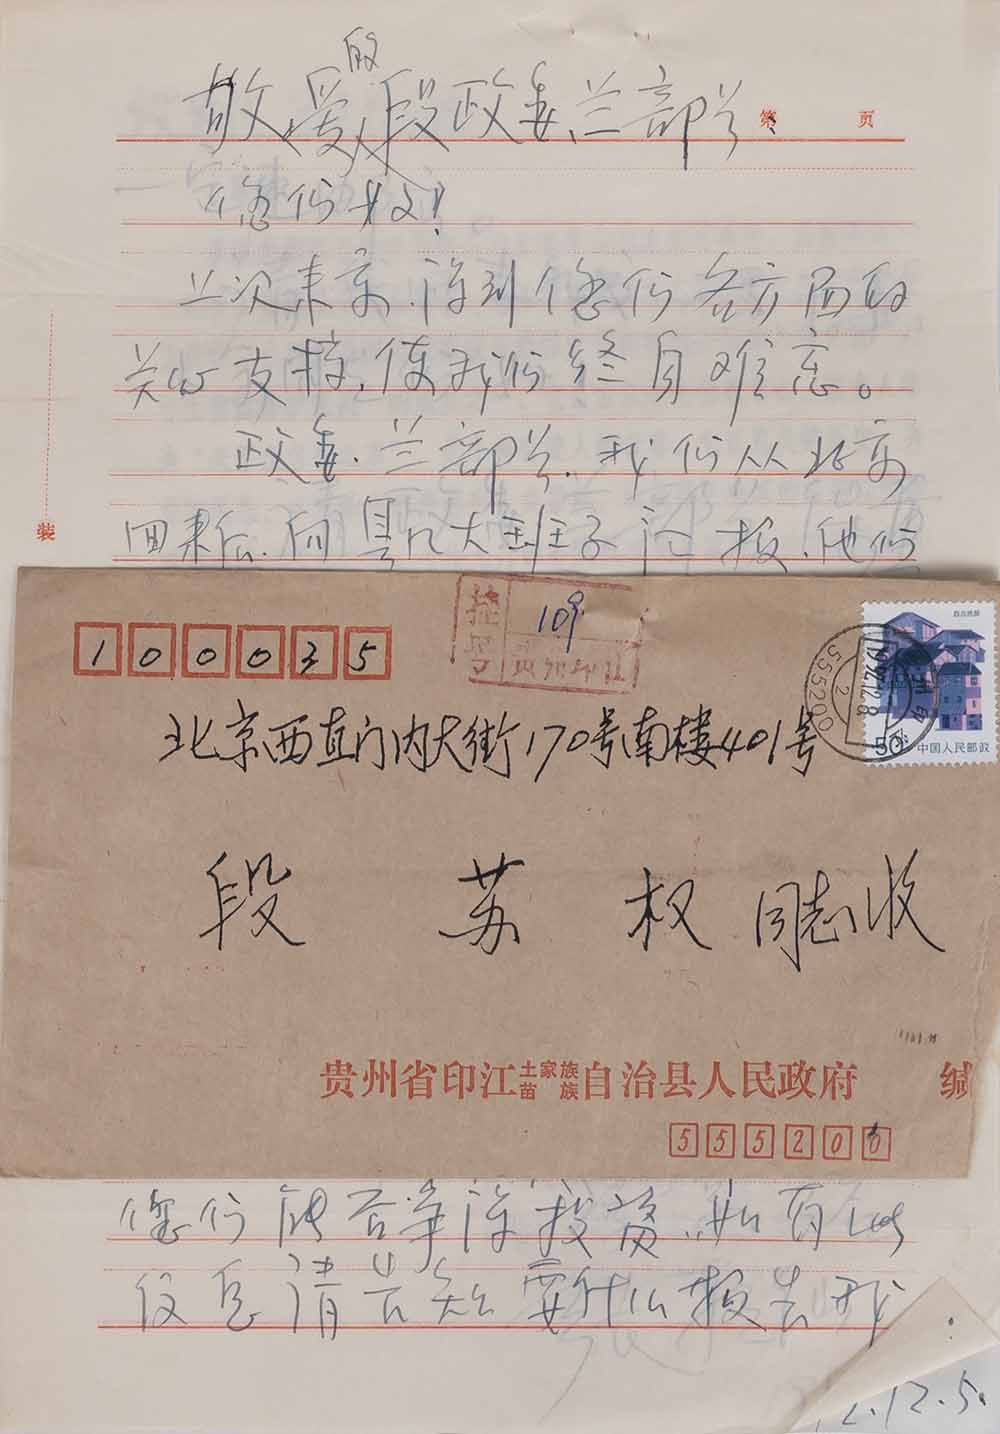 敬爱的段政委、兰部长
第 页
您们好！
上次来京，得到您们各方面的
关心支持，使我们终身难忘。
政委、兰部长，我们从北京
回来后，向县几大班子汇报，他们
装
挂号
109
贵州印江
100035
北京西直门内大街170号南楼401号
50分
中国人民邮政
555200
段 苏 权 同志收
贵州省印江土家族苗族自治县人民政府 缄
555200
您们能否争得投资，如有此
信息请告知要什么报告我
2.12.5.